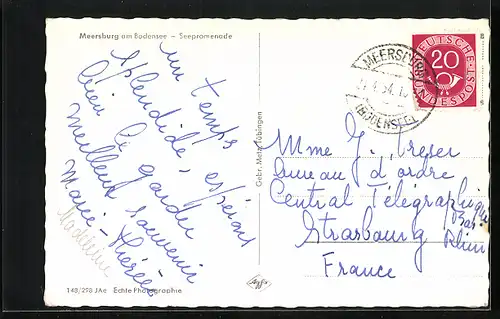 Meersburg am Bodensee – Seepromenade
un temps
splendide, espérant
bien le garder
meilleur souvenir
Marie-Thérèse
Madeleine
148/298 JAe Echte Photographie
Gebr. Metz, Tübingen
MEERSBURG
.4.54.1
(BODENSEE)
DEUTSCHE
20
BUNDESPOST
Mme J.
bureau d'ordre
Central Télégraphique
Bas
Strasbourg Rhin
France